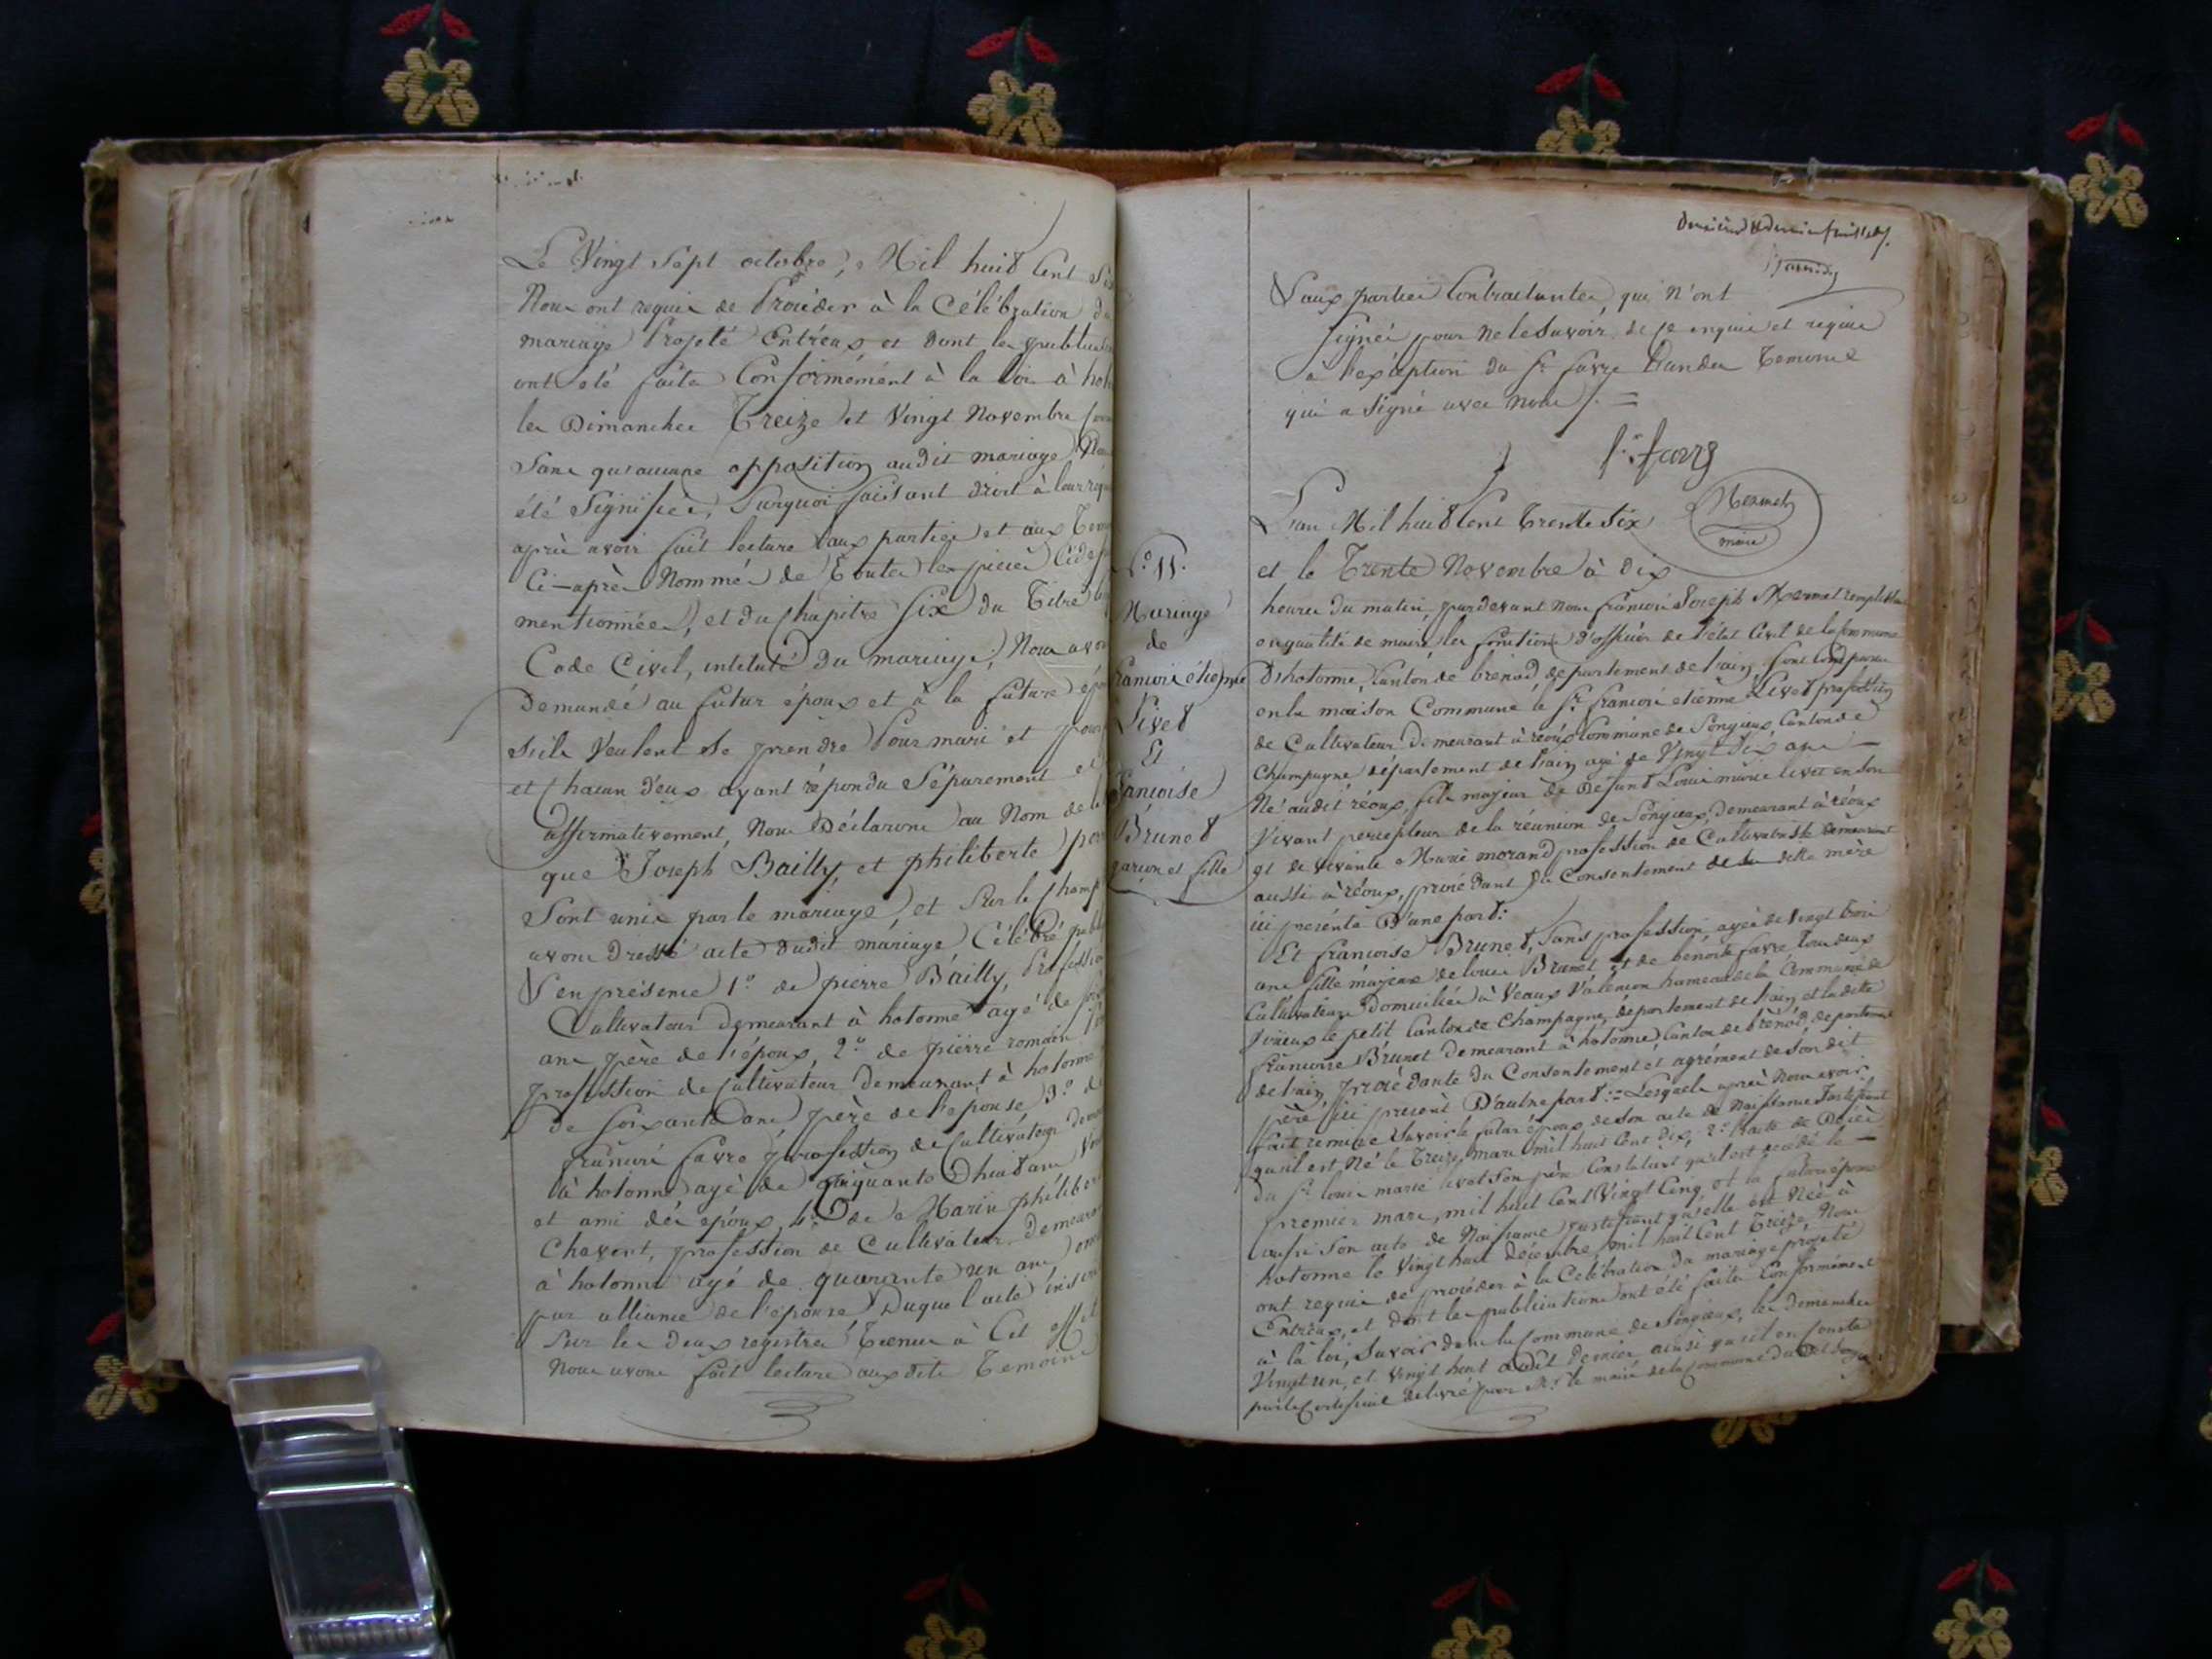 Le Vingt Sept octobre, Mil huit Cent
Nous ont requis de Procéder à la Célébration du
mariage Projeté Entréux et dont les
ont été faites Conformément à la loi à
les Dimanches Treize et Vingt Novembre
Sans qu'aucune opposition audit mariage
été Signifiée, Surquoi faisant droit à leur
après avoir fait lecture aux parties et aux
Ci-après Nommés de Toutes les pièces
mentionnées, et du Chapitre Six du Titre
Code Civil, intitulé du mariage, Nous
Demandé au futur époux et à la future
s'ils Veulent se prendre Pour mari et pour
et Chacun d'eux ayant répondu Séparement et
affirmativement, Nous Déclarons au Nom de
que Joseph Bailly, et philiberte
Sont unis par le mariage, et Sur le Champ
avons Dressé acte dudit mariage Célébré
en présence 1.° de pierre Bailly,
Cultivateur Demeurant à hotonne agé de
ans père de l'époux, 2.° de pierre romain
profession de Cultivateur Demeurant à hotonne
de Soixante ans père de l'épouse, 3.° de
françois favre profession de Cultivateur
à hotonne agé de Cinquante huit ans
et ami des époux, 4.° de Marin
Chavent, profession de Cultivateur
à hotonne agé de quarante un ans,
par alliance de l'épouse, Duquel acte
Sur les deux registres Tenus à Cet effet
Nous avons fait lecture auxdits Temoins
aux parties Contractantes qui N'ont
Signé pour ne le Savoir de ce enquis et requis
à l'exeption du Sr. favre Temoins
qui a Signé avec nous =
favre
Mermet
maire
L'an Mil huit Cent Trente Six
et le Trente Novembre à dix
N.° 11.
Mariage
de
françois étienne
Livet
Et
françoise
Brunet
garçon et fille
heures du matin, pardevant nous françois Joseph Mermet
en qualité de maire les fonctions d'officier de l'état Civil de la Commune
D'hotonne, Canton de brenod, département de l'ain, Sont
en la maison Commune le Sr. françois etienne Livet profession
de Cultivateur Demeurant à réoux Commune de Songieux, Canton de
Champagne, département de l'ain agé de Vingt Six ans
Né audit réoux, fils majeur de Défunt Louis marie livet en Son
Vivant percepteur de la réunion de Songieux, Demeurant à réoux
et de vivante Marie morand profession de Cultivatrice demeurant
aussi à réoux, procédant du Consentement de Sa dette mère
ici présente D'une part:
Et françoise Brunet, Sans profession, agée de Vingt trois
ans fille majeure de louis Brunet et de benoite favre Tous deux
Cultivateurs Domiciliés à Veaux Valencon hameau de la Commune de
le petit, Canton de Champagne, département de l'ain, et la dite
françoise Brunet Demeurant à hotonne, Canton de brenod, département
de l'ain, procédante du Consentement et agrément de Son dit
père ici présent D'autre part:= Lesquels après Nous avoir
fait remise Savoir le futur époux de Son acte de Naissance Justifiant
qu'il est Né le Treize mars mil huit Cent dix, 2.° l'acte de Décès
du Sr. louis marie livet Son père Constatant qu'il est décédé le
premier mars, mil huit Cent Vingt Cinq et la future épouse
aussi Son acte de Naissance, Justifiant qu'elle est Née à
hotonne le Vingt huit décembre mil huit Cent Treize, Nous
ont requis de procéder à la Célébration du mariage projeté
Entréux, et dont les publications ont été faites Conformément
à la loi, Savoir dans la Commune de Songieux, les Demanches
Vingt un, et Vingt huit août Dernier ainsi qu'il en Conste
par le Certificat delivré par Mr. le maire de la Commune dudit